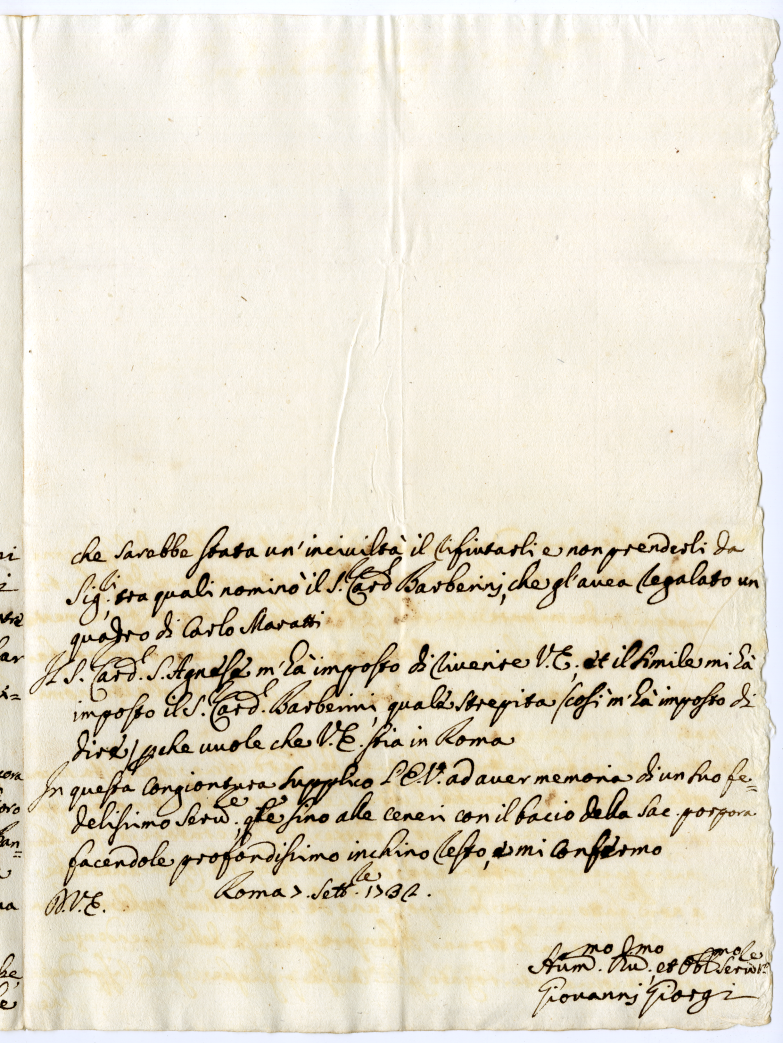 che sarebbe stata un' inciviltà il rifiutarli e non prenderli da
Sig.ri, tra quali nominò il S. Card.l Barberinj, che gl'avea regalato un
quadro di Carlo Maratti
Il S. Card.l S. Agnese m'hà imposto di riverire V.E., et il simile mi hà
imposto il S. Card.l Barberini, quale strepita (così m'hà imposto di
dire) pche vuole che V.E. stia in Roma
In questa congiontura supplico l'E.V. ad aver memoria di un suo fe=
delissimo Serv.re, qle sino alle ceneri con il bacio della Sac. porpora
facendole profondissimo inchino resto, e mi confermo
D.V.E.
Roma 7. Sett.bre 1732.
Hum.mo Dev.mo, et Obl.mo Serv.re
Giovannj Giorgi
ni
i
ar
ora
oro
an=
na
he,
le